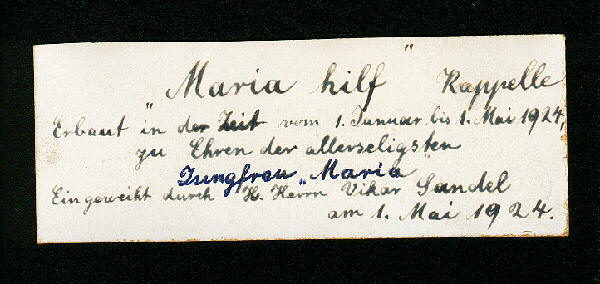 „Maria hilf" Kappelle
Erbaut in der Zeit vom 1. Januar bis 1. Mai 1924,
zu Ehren der allerseligsten
Jungfrau „Maria"
Eingeweiht durch H. Herrn Vikar Sandel
am 1. Mai 1924.